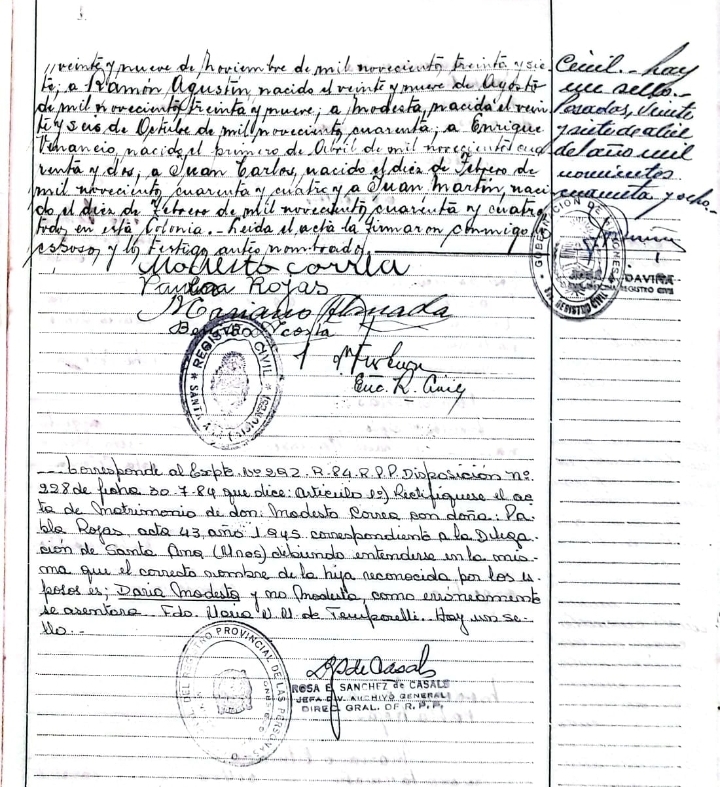 veinte y nueve de Noviembre de mil novecientos treinta y sie-
te; a Ramón Agustín nacido el veinte y nueve de Agosto
de mil novecientos treinta y nueve; a Modesta, nacida el vein
te y seis de Octubre de mil novecientos cuarenta; a Enrique
Venancio, nacido el primero de Abril de mil novecientos cua
renta y dos; a Juan Carlos, nacido el diez de Febrero de
mil novecientos cuarenta y cuatro y a Juan Martín, naci
do el diez de Febrero de mil novecientos cuarenta y cuatro
todos en esta Colonia. - Leida el acta la firmaron conmigo los
esposos y los testigos antes nombrados
Modesto Correa
Rojas
Mariano
REGISTRO CIVIL
SANTA ANA (MISIONES)
Enc. R. Civil
Civil. - hay
un sello. -
Posadas, Veinte
y siete de abril
del año mil
novecientos
cuarenta y ocho. -
GOBERNACION DE MISIONES
DAVIÑA
REGISTRO CIVIL
REGISTRO CIVIL
Corresponde al Expte. Nº 292-R-84-R.P.P. Disposición Nº
928 de fecha 30-7-84 que dice: Artículo 1º) Rectifíquese el ac
ta de Matrimonio de don: Modesto Correa con doña: Pa-
bla Rojas, acta 43, año 1945 correspondiente a la Delega
ción de Santa Ana (Mnes) debiendo entenderse en la mis-
ma que el correcto nombre de la hija reconocida por los es
posos es; Daria Modesta y no Modesta como erróneamente
se asentara. Fdo. Maria de Temporelli. Hay un se-
llo. -
REGISTRO PROVINCIAL DE LAS PERSONAS
de Casals
ROSA E. SANCHEZ de CASALS
JEFA DIV. ARCHIVO GENERAL
DIREC. GRAL. DE R. P. P.